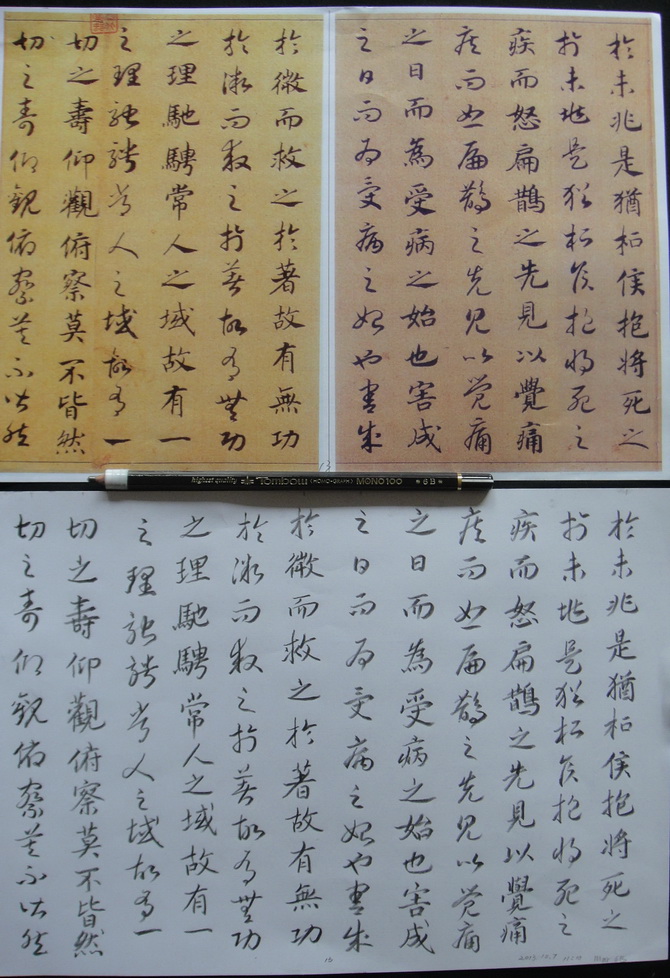 於未兆是猶桓侯抱將死之
於未兆是猶桓侯抱將死之
疾而怒扁鵲之先見以覺痛
疾而怒扁鵲之先見以覺痛
之日而為受病之始也害成
之日而為受病之始也害成
於微而救之於著故有無功
於微而救之於著故有無功
之理馳騁常人之域故有一
之理馳騁常人之域故有一
切之壽仰觀俯察莫不皆然
切之壽仰觀俯察莫不皆然
13
highest quality Tombow (HOMO-GRAPH) MONO100 6B
於未兆是猶桓侯抱將死之
於未兆是猶桓侯抱將死之
疾而怒扁鵲之先見以覺痛
疾而怒扁鵲之先見以覺痛
之日而為受病之始也害成
之日而為受病之始也害成
於微而救之於著故有無功
於微而救之於著故有無功
之理馳騁常人之域故有一
之理馳騁常人之域故有一
切之壽仰觀俯察莫不皆然
切之壽仰觀俯察莫不皆然